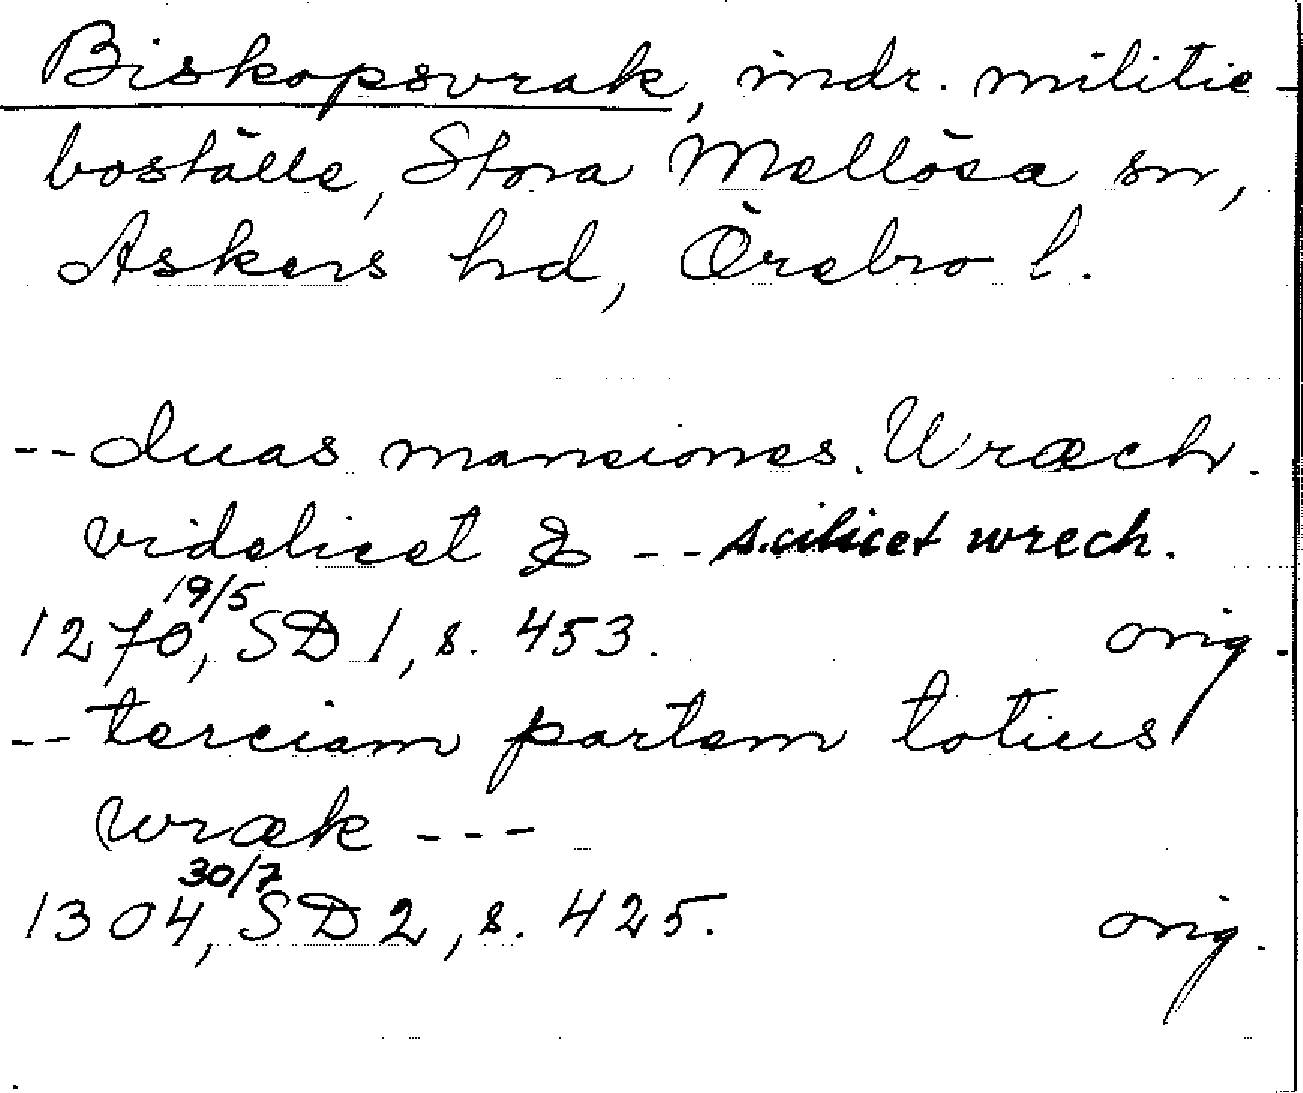 Biskopsvrak, indr. militie-
boställe, Stora Mellösa sn,
Askers hd, Örebro l.
--duas mansiones. Vræch.
videlicet & -- scilicet wrech.
19/5
1270, SD 1, s. 453. orig.
-- terciam partem totius
wræk ---
30/7
1304, SD 2, s. 425. orig.